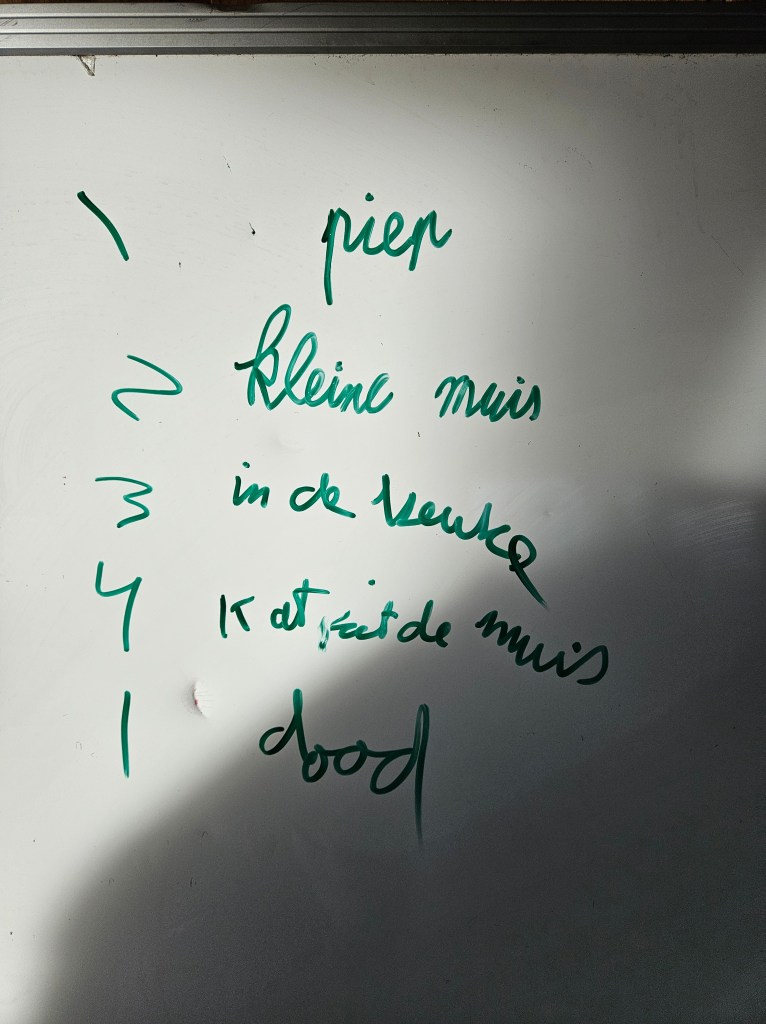 1 piep
2 kleine muis
3 in de keuke
4 Kat eet de muis
1 dood